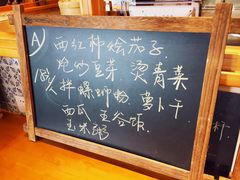 A
西红柿烩茄子
炝炒豆芽 烫青菜
什么拌螺蛳粉 萝卜干
西瓜 五谷饭
玉米粥
杯